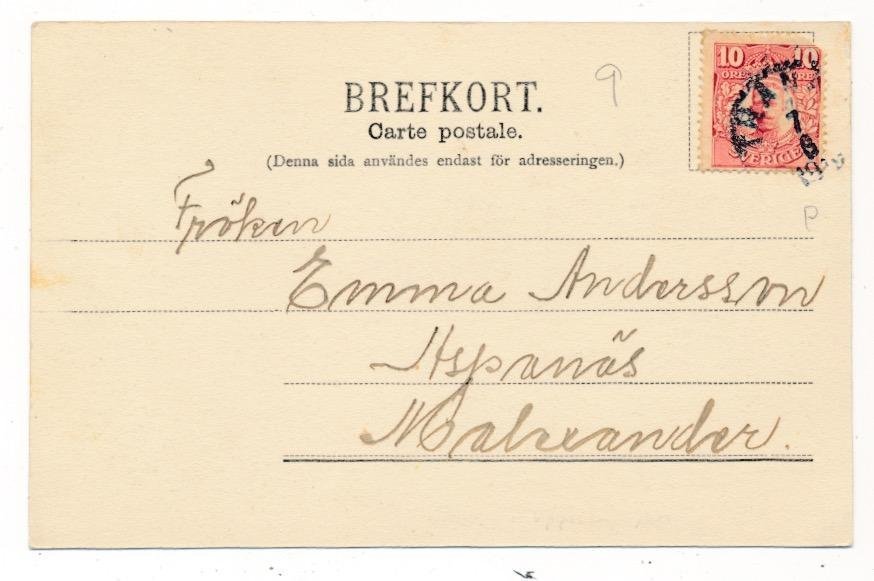 BREFKORT.
Carte postale.
(Denna sida användes endast för adresseringen.)
9
10 10
ÖRE ÖRE
SVERIGE
TRAN
7
8
P
Fröken
Emma Andersson
Aspanäs
Malexander.